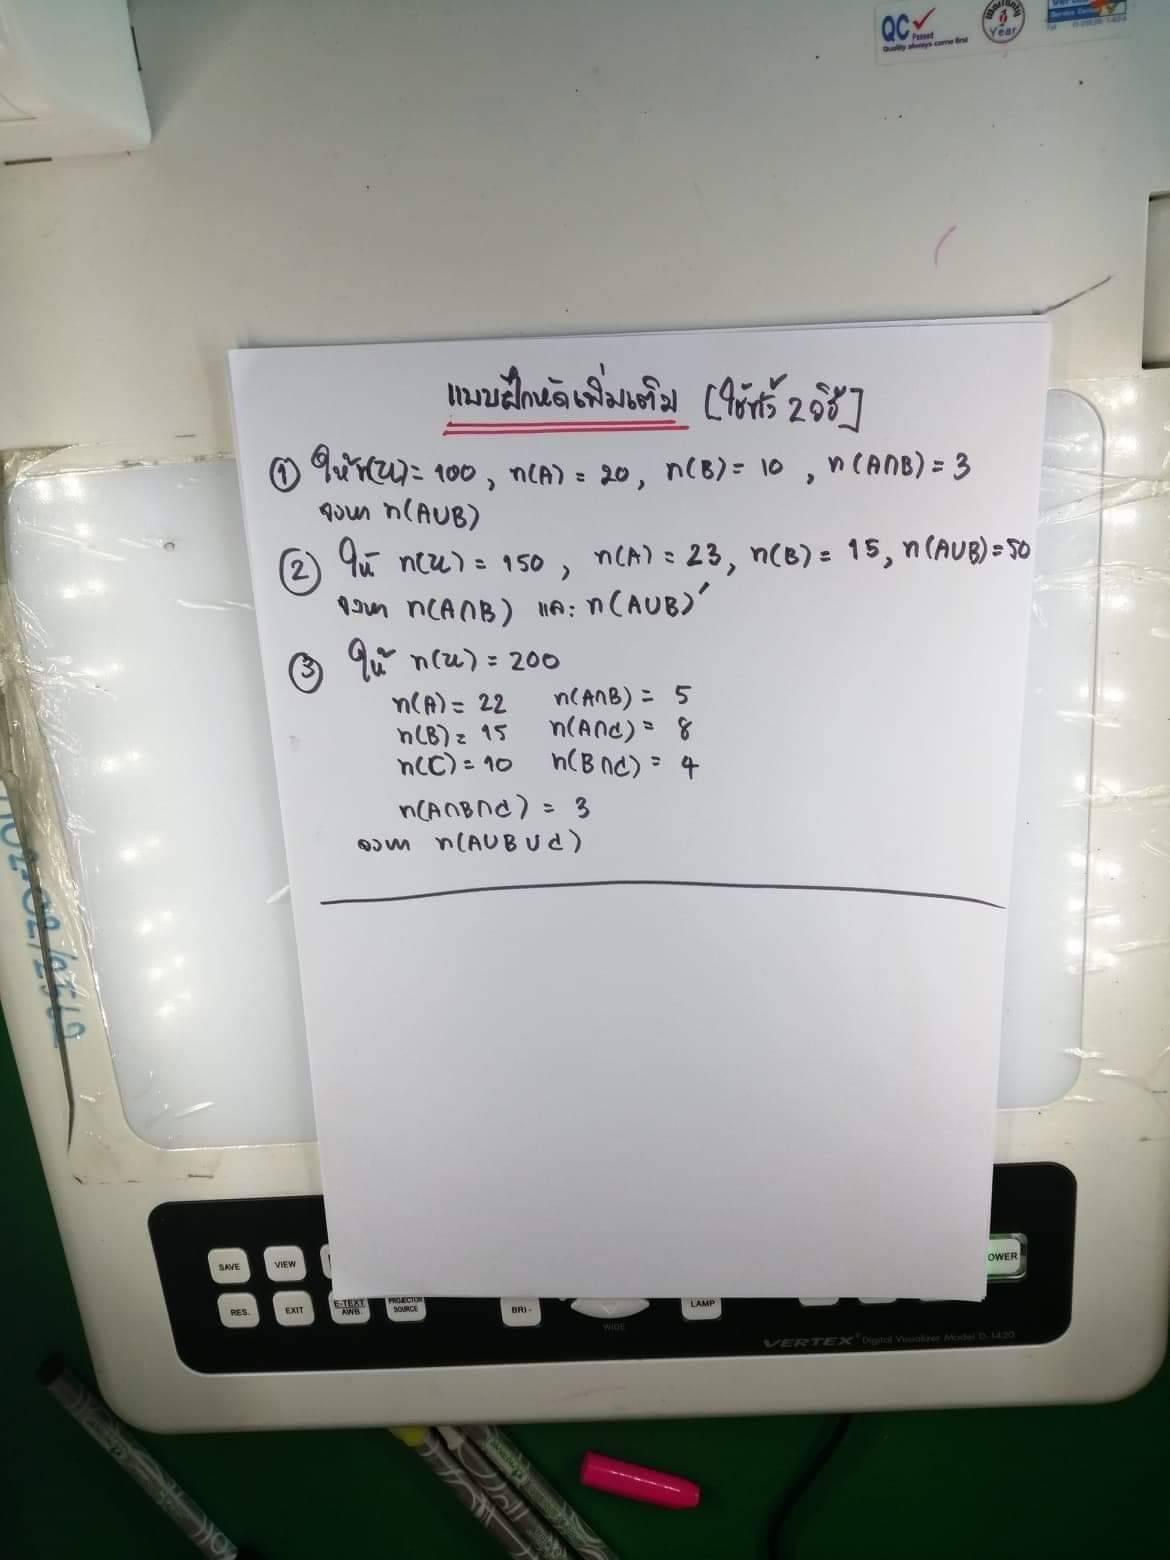 QC Passed
Quality always come first
Warranty
1
Year
Service
แบบฝึกหัดเพิ่มเติม [ใช้ทั้ง 2 วิธี]
① ให้ n(U) = 100, n(A) = 20, n(B) = 10, n(A∩B) = 3
จงหา n(A∪B)
② ให้ n(U) = 150, n(A) = 23, n(B) = 15, n(A∪B) = 50
จงหา n(A∩B) และ n(A∪B)'
③ ให้ n(U) = 200
n(A) = 22 n(A∩B) = 5
n(B) = 15 n(A∩C) = 8
n(C) = 10 n(B∩C) = 4
n(A∩B∩C) = 3
จงหา n(A∪B∪C)
SAVE VIEW OWER
RES. EXIT E-TEXT AWB. PROJECTOR SOURCE BRI - WIDE LAMP
VERTEX Digital Visualizer Model D-1420